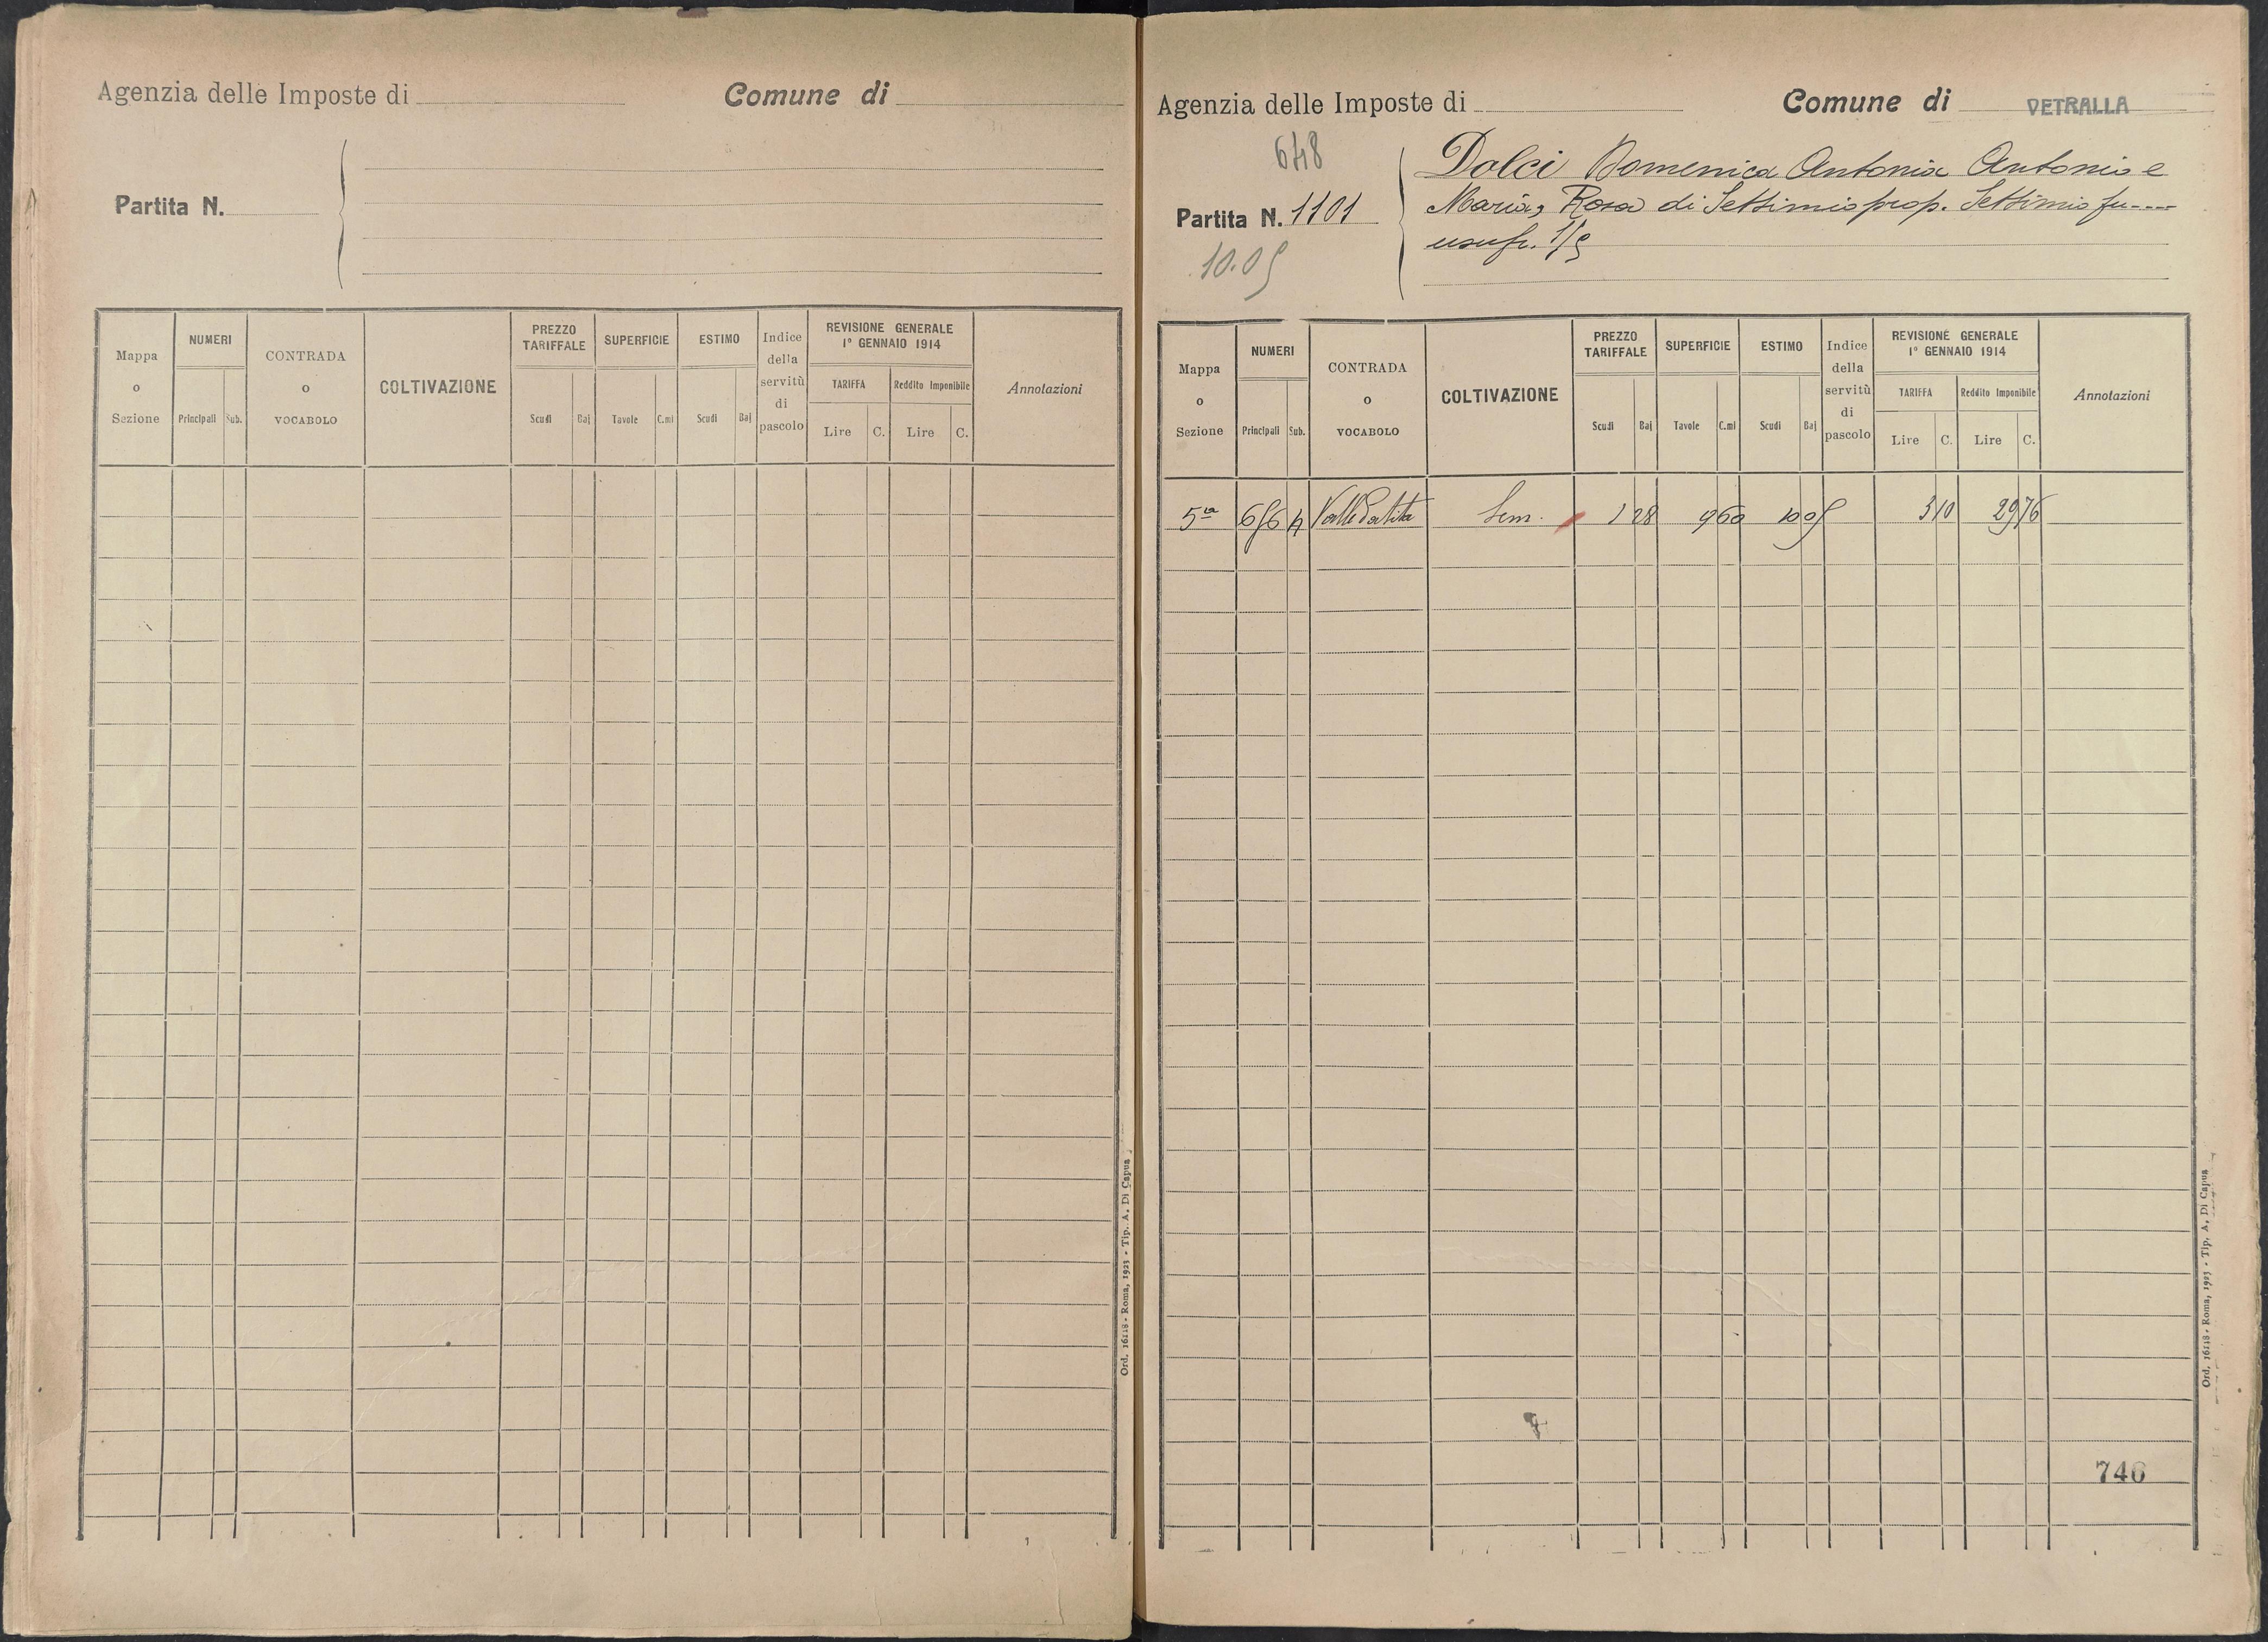 Agenzia delle Imposte di Comune di
Partita N.
Mappa o Sezione
NUMERI
Principali Sub.
CONTRADA o VOCABOLO
COLTIVAZIONE
PREZZO TARIFFALE
Scudi Baj
SUPERFICIE
Tavole C.mi
ESTIMO
Scudi Baj
Indice della servitù di pascolo
REVISIONE GENERALE
1° GENNAIO 1914
TARIFFA Reddito Imponibile
Lire C. Lire C.
Annotazioni
Ord. 16118 - Roma, 1923 - Tip. A. Di Capua
Agenzia delle Imposte di Comune di VETRALLA
648
Partita N. 1101
10.05
Dolci Domenica Antonia Antonio e
Maria, Rosa di Settimio prop. Settimio fu ----
usufr. 1/5
Mappa o Sezione
NUMERI
Principali Sub.
CONTRADA o VOCABOLO
COLTIVAZIONE
PREZZO TARIFFALE
Scudi Baj
SUPERFICIE
Tavole C.mi
ESTIMO
Scudi Baj
Indice della servitù di pascolo
REVISIONE GENERALE
1° GENNAIO 1914
TARIFFA Reddito Imponibile
Lire C. Lire C.
Annotazioni
5ta 656 4 Sem. 1 28 9 60 10 05 3 10 29 76
746
Ord. 16118 - Roma, 1923 - Tip. A. Di Capua